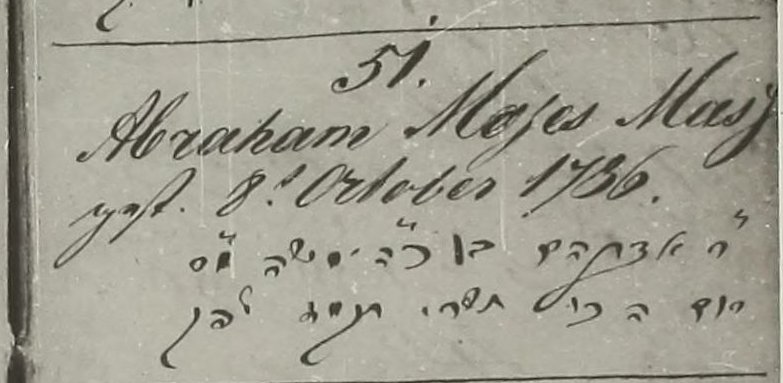 51.
Abraham Moses
gest. 8t October 1736.
ר״ אברהם בן כ״ה משה
יום ה כו׳ תשרי לפק